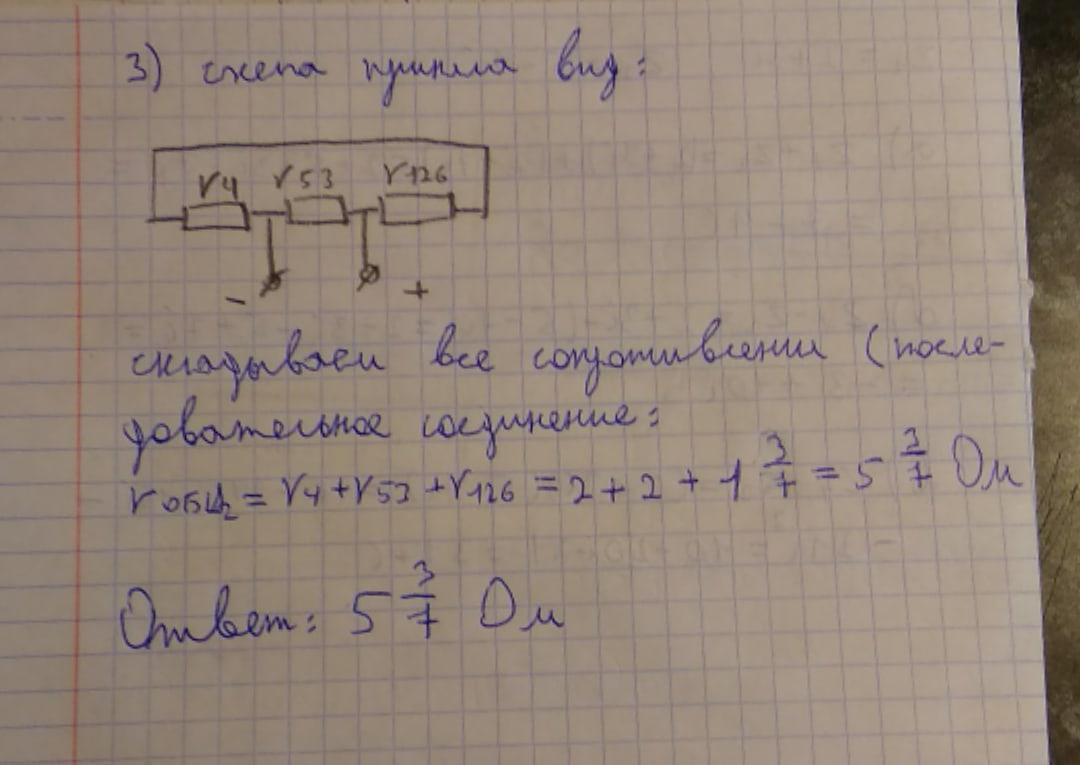 3) схема приняла вид:
r4 r53 r126
- +
складываем все сопротивления (после-
довательное соединение:
rобщ = r4 + r53 + r126 = 2 + 2 + 1 3/7 = 5 3/7 Ом
Ответ: 5 3/7 Ом